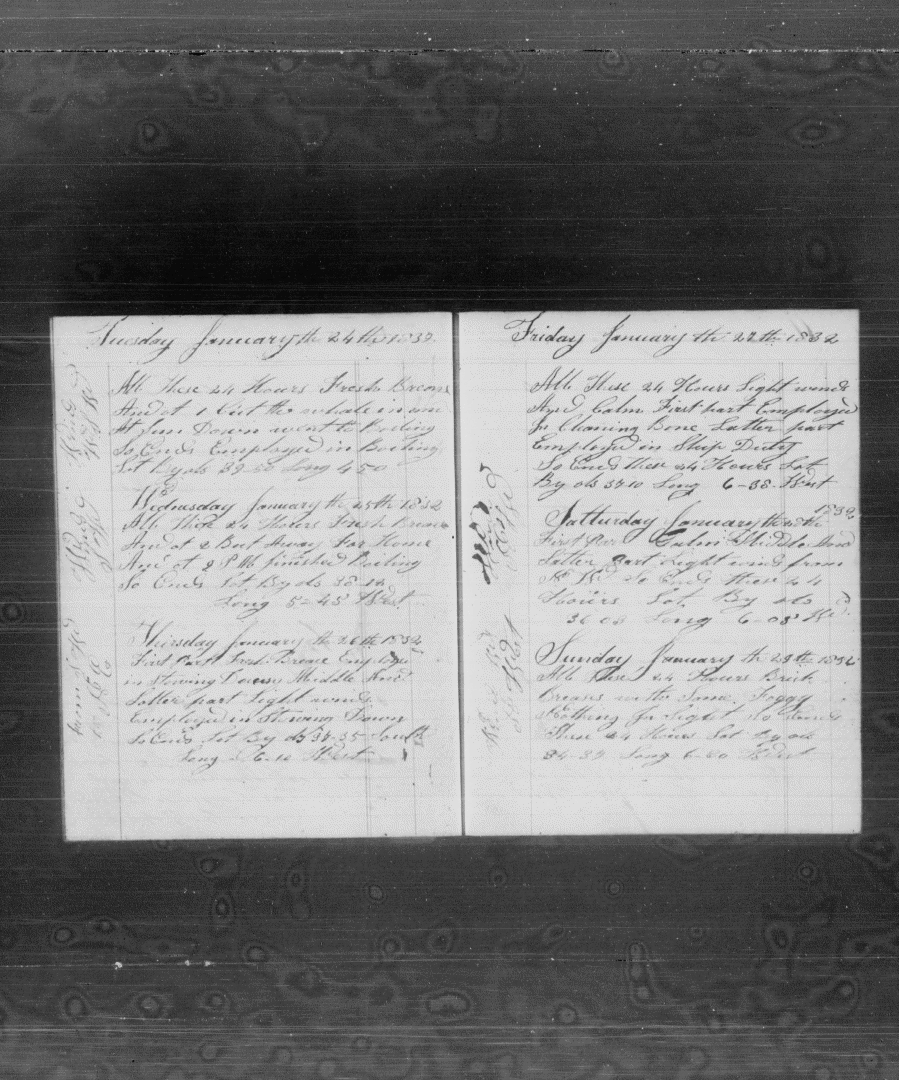 Tuesday January th 24 th 1832
All These 24 Hours Fresh Breeas
And at 1 Cut the whale in and
At Sun Down went to Boiling
So Ends Employed in Boiling
Lat By obs 39-50 Long 4 50
Wednesday January th 25th 1832
All These 24 Hours Fresh Breeas
And at 2 But Away For Home
And at 2 PM finished Boiling
So Ends Lat By obs 38-18
Long 5-45 West
Thursday January th 26 th 1832
First Part Fresh Breeae Employed
in Stowing Down Middle And
Latter part Light winds
Employed in Stowing Down
So Ends Lat By obs 37-35 South
Long 6-12 West
Friday January th 27th 1832
All These 24 Hours Light winds
And Calm First part Employed
In Cleaning Bone Latter part
Employed in Ship Duty
So Ends these 24 Hours Lat
By obs 37 10 Long 6-38 West
Satturday January th 28th 1832
First Part Calm Middle And
Latter Part Light wind from
N W So Ends these 24
Hours Lat By obs
36 08 Long 6-08 W
Sunday January th 29th 1832
All These 24 Hours Brisk
Breases with Some Foggy
Nothing In Sight So Ends
These 24 Hours Lat By obs
34-39 Long 6-20 West